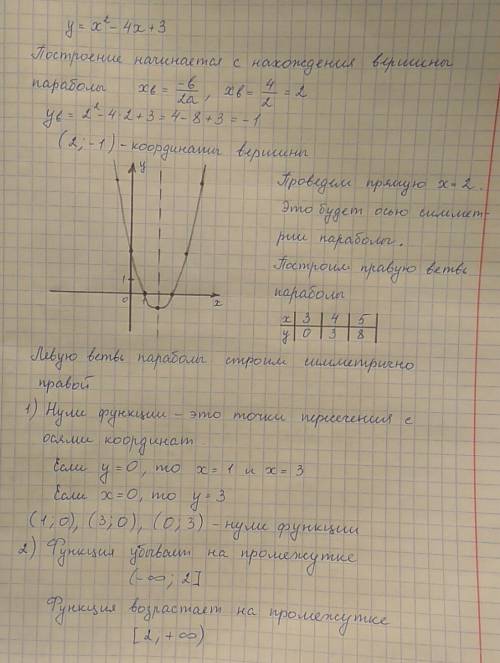 y = x² - 4x + 3
Построение начинается с нахождения вершины
параболы xв = -b/2a, xв = 4/2 = 2
yв = 2² - 4·2 + 3 = 4 - 8 + 3 = -1
(2; -1) - координаты вершины
y
1
0 1 x
Проведем прямую x = 2.
Это будет осью симмет-
рии параболы.
Построим правую ветвь
параболы
x | 3 | 4 | 5
y | 0 | 3 | 8
Левую ветвь параболы строим симметрично
правой
1) Нули функции - это точки пересечения с
осями координат
Если y = 0, то x = 1 и x = 3
Если x = 0, то y = 3
(1; 0), (3; 0), (0; 3) - нули функции
2) Функция убывает на промежутке
(-∞; 2]
Функция возрастает на промежутке
[2, +∞)